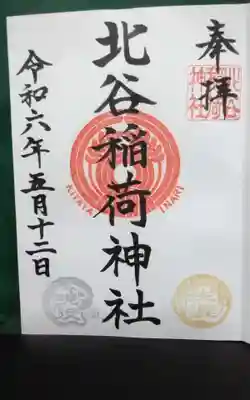 奉拝
北谷稲荷神社
令和六年五月十二日